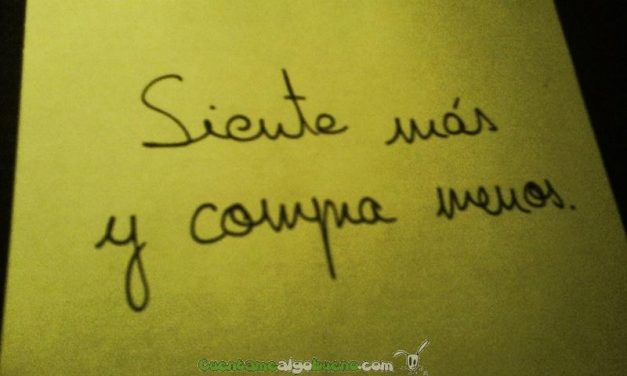 Siente más
y compra menos.
Cuentamealgobueno.com